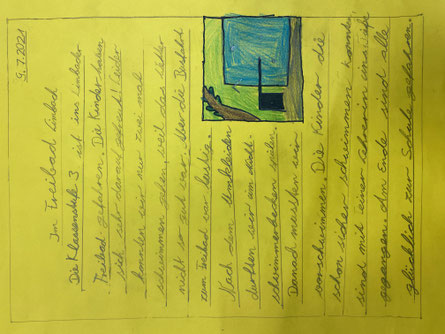 9.7.2021
Im Freibad Limbad
Die Klassenstufe 3 ist ins Limbader
Freibad gefahren. Die Kinder haben
sich sehr darauf gefreut! Leider
konnten wir nur zwei mal
schwimmen gehen, weil das Wetter
nicht so gut war. Nur die Busfahrt
zum Freibad war lustig.
Nach dem Umkleiden
durften wir uns ans
schwimmerbecken
Danach mussten wir
vorschwimmen. Die Kinder die
schon sicher schwimmen konnten
sind mit einer Lehrerin
gegangen. Am Ende sind alle
glücklich zur Schule gefahren.